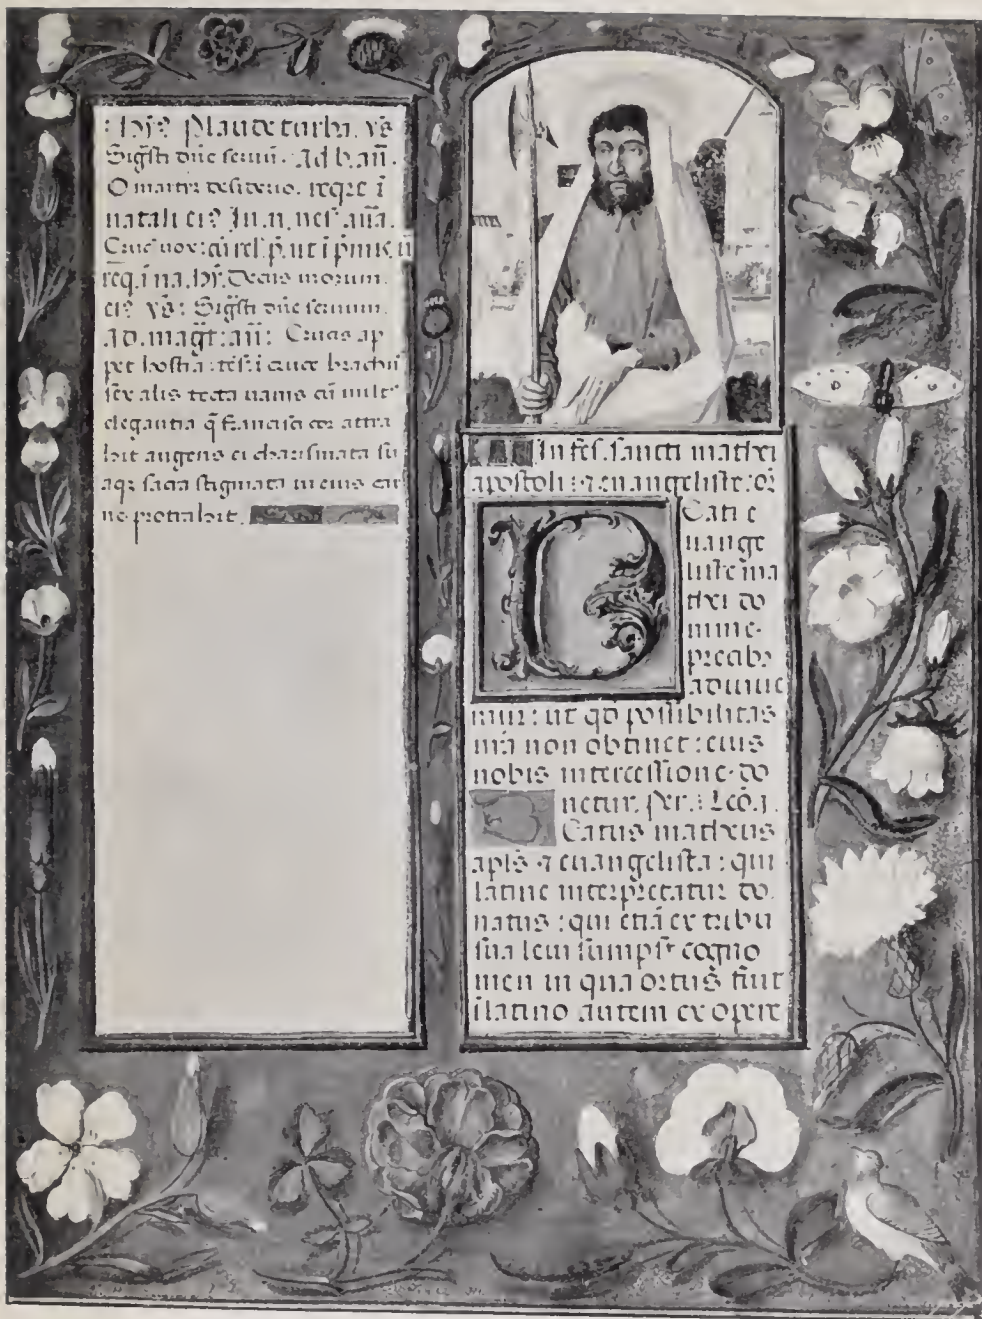 : hy̅ꝰ Plaude turba. v̅s
Sig̅sti dn̅e seruu̅. Ad b. an̅.
O martyr desiderio. reqͬe i̅
natali eiꝰ In .n. nest. an̅a.
Crucꝭ vox: cu̅ rel'. p̅. ut i̅ pͥmis
req. i̅ na. hy̅. Decus morum.
eiꝰ v̅s: Sig̅sti dn̅e seruum.
ad. mag̅t: an̅: Crucis ap
pet hostia: test' i cruce brachiu̅
sex alis tecta nauis cu̅ mltꝰ
elegantia q̅ francisci cor attra
hit augens ei charismata su
aqꝫ sacra stigmata in eius car
ne protrahit.
In fes. sancti mathei
apostoli ⁊ euangeliste: or̅
Eati e
uange
liste ma
thei do
mine
precibꝰ
adiuue
mur: ut qd̅ possibilitas
nr̅a non obtinet: eius
nobis intercessione do
netur. per. Lco̅. j.
Eatus matheus
apl̅s ⁊ euangelista: qui
latine interpretatur do
natus: qui etia̅ ex tribu
sua leui sumpsit cogno
men in qua ortus fuit
i latino autem ex opere